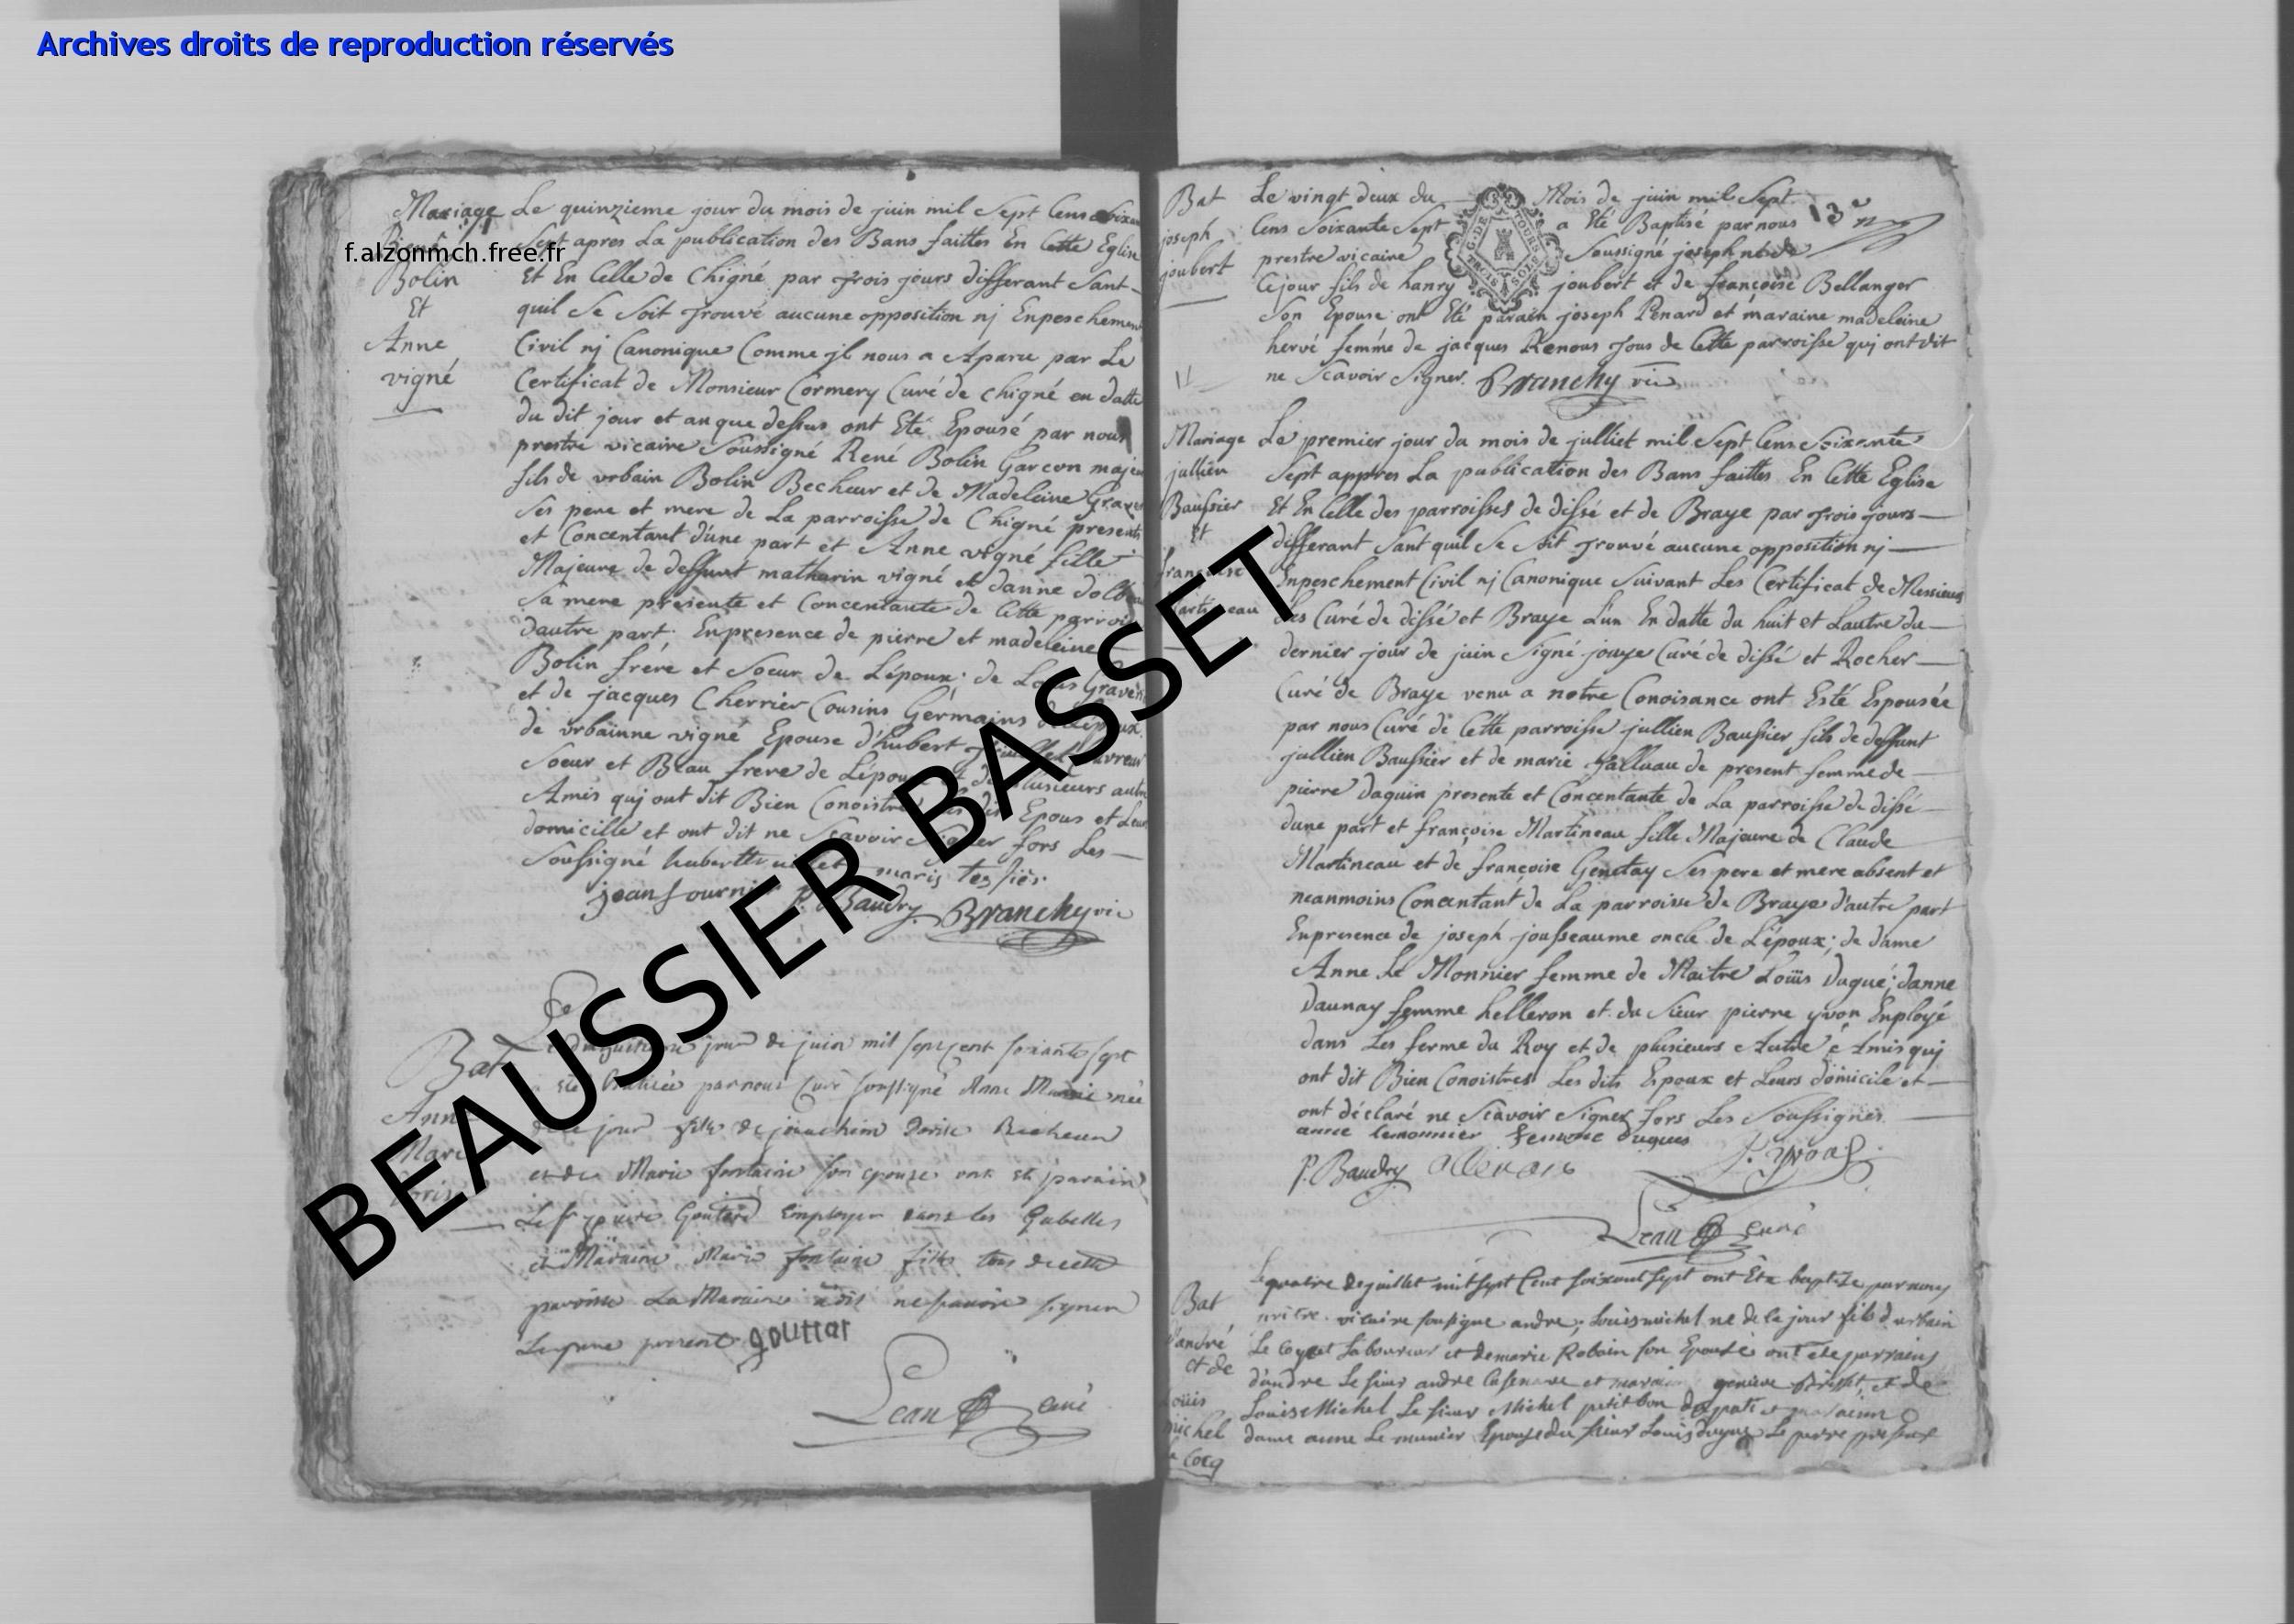 Archives droits de reproduction réservés
f.alzonmch.free.fr
BEAUSSIER BASSET
Mariage
René
Bolin
Et
Anne
vigné
Le quinzieme jour du mois de juin mil Sept Cens Soixante
Sept apres La publication des Bans faittes En Cette Eglise
Et En Celle de Chigné par trois jours differant Sant
quil Se Soit trouvé aucune opposition nj Enpeschement
Civil nj Canonique Comme jl nous a Aparu par Le
Certificat de Monsieur Cormery Curé de Chigné en datte
du dit jour et an que dessus ont Eté Epousé par nous
prestre vicaire Soussigné René Bolin Garcon majeur
fils de urbain Bolin Becheur et de Madeleine
Ses pere et mere de La parroisse de Chigné presents
et Concentant d'une part et Anne vigné fille
Majeure de deffunt mathurin vigné et danne
Sa mere presente et Concentante de Cette parroisse
dautre part. Enpresence de pierre et madeleine
Bolin frere et Soeur de L'époux; de Louis
et de jacques Cherrier Cousins Germains de L'époux
de urbainne vigné Epouse d'hubert
Soeur et Beau frere de L'épouse et de plusieurs autre
Amis quj ont dit Bien Conoistre Les dit Epous et Leur
domicille et ont dit ne Scavoir Signer fors Les
Soussigné hubert
jean P. Baudry Branchy vic
Bat
Anne
Marie
Le
jour de juin mil sept cent soixante sept
a été Batisée par nous Curé soussigné Anne Marie née
de ce jour fille de
et de Marie fontaine son epouse ont eté parain
Le Sr Employer dans les Gabelles
et Maraine Marie fontaine fille tous de cette
paroisse La Maraine a dit ne savoir signer
Le pere present gouttar
Lean curé
Bat
joseph
joubert
Le vingt deux du Mois de juin mil Sept
Cens Soixante Sept a Eté Baptisé par nous
prestre vicaire Soussigné joseph né de
Cejour fils de hanry joubert et de françoise Bellanger
Son Epouse ont Eté parain joseph Penard et maraine madeleine
hervé femme de jacques Renous tous de Cette parroisse quj ont dit
ne Scavoir Signer. Branchy vic
G. DE TOURS
TROIS SOLS
13e
Mariage
jullien
Baussier
Et
françoise
Martineau
Le premier jour du mois de julliet mil Sept Cens Soixante
Sept appres La publication des Bans faittes En Cette Eglise
Et En Celle des parroisses de dissé et de Braye par trois jours
differant Sant quil Se Soit trouvé aucune opposition nj
Enpeschement Civil nj Canonique Suivant Les Certificat de Messieurs
Les Curé de dissé et Braye L'un En datte du huit et Lautre du
dernier jour de juin Signé jouye Curé de dissé et Rocher
Curé de Braye venu a notre Conoisance ont Esté Espousée
par nous Curé de Cette parroisse jullien Baussier fils de deffunt
jullien Baussier et de marie Galluau de present femme de
pierre Daguin presente et Concentante de La parroisse de dissé
dune part et françoise Martineau fille Majeure de Claude
Martineau et de françoise Genetay Ses pere et mere absent et
neanmoins Concentant de La parroisse de Braye d'autre part
Enpresence de joseph jousseaume oncle de L'époux; de dame
Anne Le Monnier femme de Maitre Loüis Dugué; danne
Daunay femme helleron et du Sieur pierre yvon Enployé
dans Les ferme du Roy et de plusieurs Autre Amis quj
ont dit Bien Conoistres Les dits Epoux et Leurs domicile et
ont déclaré ne Scavoir Signer fors Les Soussignés
anne lemonnier femme dugues
P. Baudry P. yvon
Lean curé
Bat
d'andré
et de
Louis
michel
Le Cocq
Le quatre de juillet mil sept Cent soixant sept ont Eté baptizé par nous
pritre vicaire soussigne andre, Louis michel né de ce jour fils d'urbain
Le Coq Laboureur et de marie Robain son Epouse ont ete parrains
d'andre Le sieur andre et maraine et de
Louis Michel Le sieur Michel petitbon
dame anne Le munier Epouse du sieur Louis Dugué Le perre present